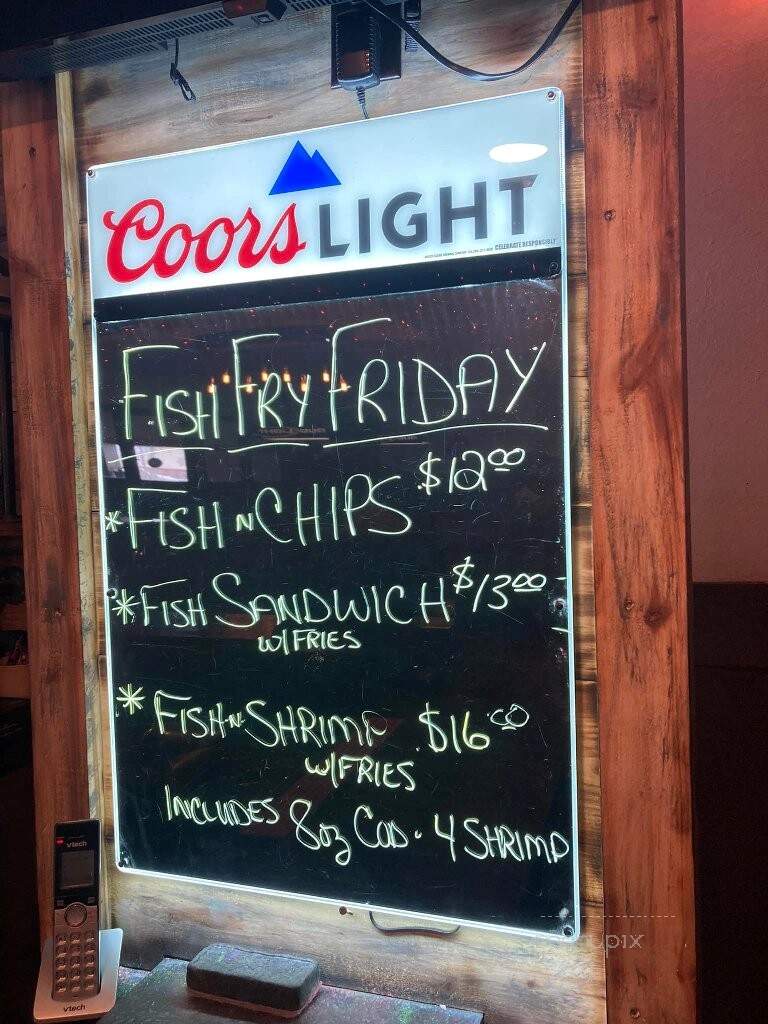 Coors LIGHT
CELEBRATE RESPONSIBLY
FISH FRY FRIDAY
*FISH N CHIPS $12.00
*FISH SANDWICH $13.00
W/FRIES
*FISH N SHRIMP $16.00
W/FRIES
INCLUDES 8oz COD. 4 SHRIMP
vtech
vtech